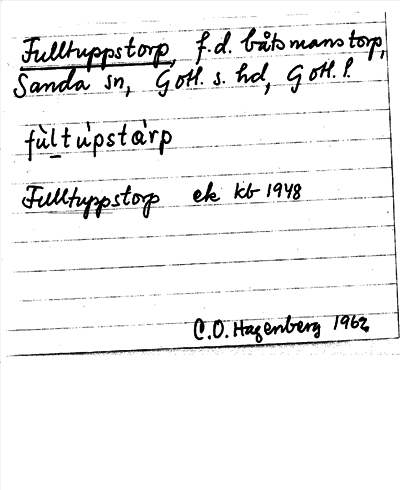 Fulltuppstorp, f.d. båtsmanstorp,
Sanda sn, Gotl. s. hd, Gotl. l.
fùltu̇pstȧrp
Fulltuppstorp ek kb 1948
C.O. Hagenberg 1962